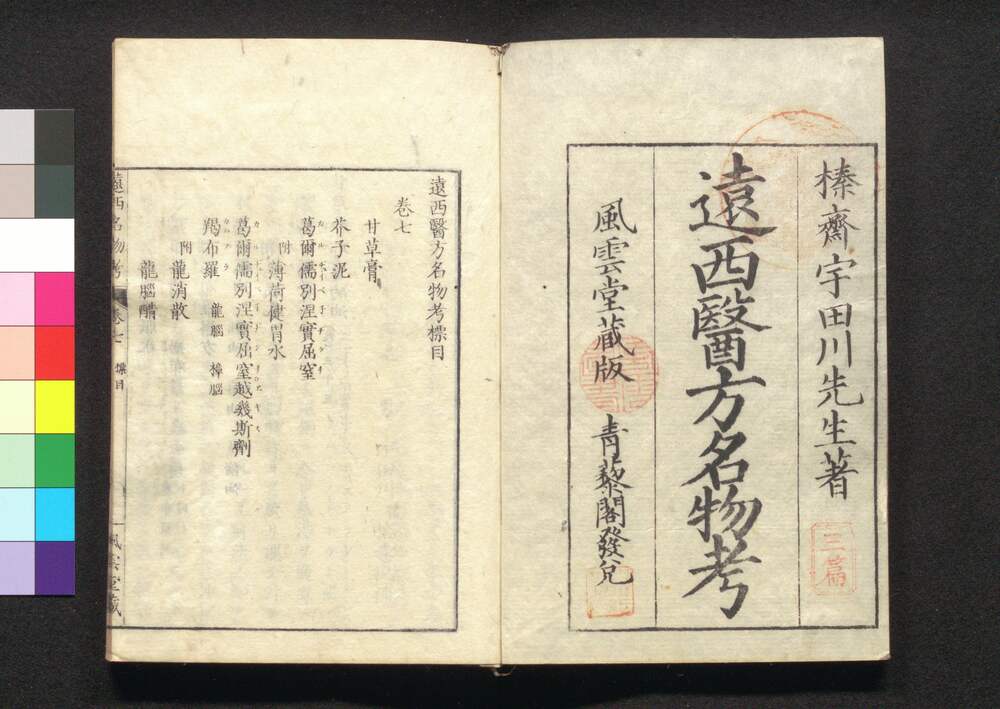 榛齋宇田川先生著
三篇
遠西醫方名物考
風雲堂藏版 青藜閣發兌
遠西醫方名物考標目
卷七
甘草膏
芥子泥
葛爾儒別涅實屈窒
附 薄荷健胃水
葛爾儒別涅實屈窒越幾斯劑
羯布羅 龍腦 樟腦
附 龍消散
龍腦醋
遠西名物考 卷七 標目 一 風雲堂藏